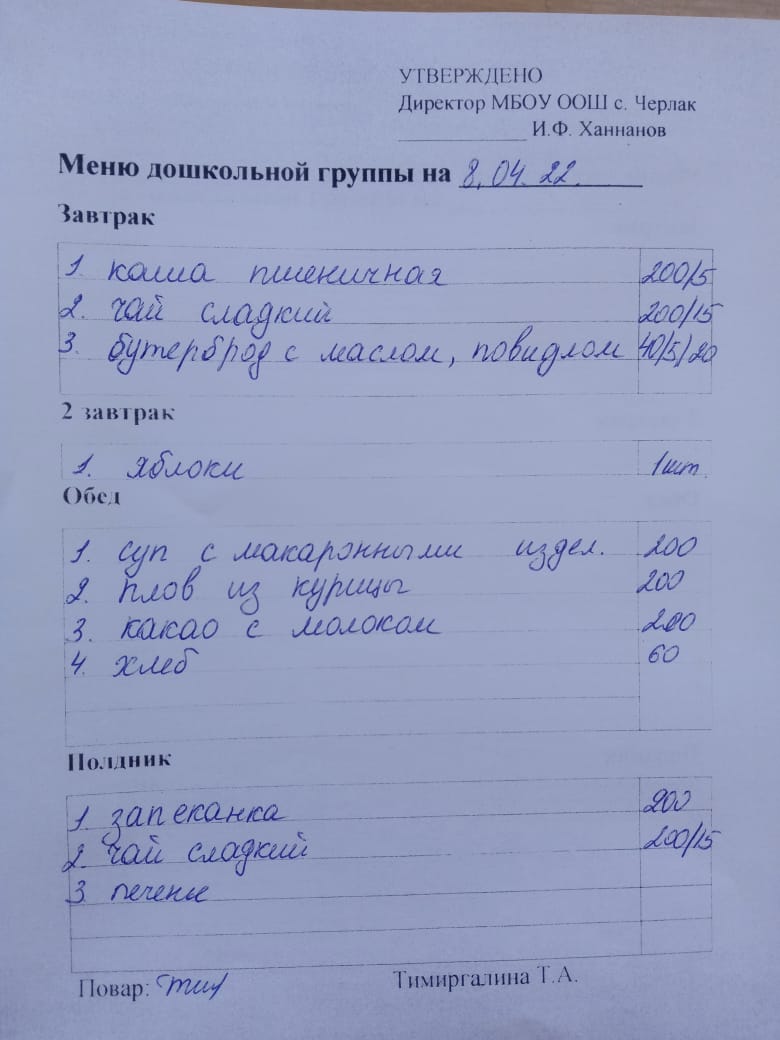 УТВЕРЖДЕНО
Директор МБОУ ООШ с. Черлак
____________ И.Ф. Ханнанов
Меню дошкольной группы на 8.04.22.
Завтрак
1. каша пшеничная 200/5
2. чай сладкий 200/15
3. бутерброд с маслом, повидлом 40/5/20
2 завтрак
1. яблоки 1шт.
Обед
1. суп с макаронными издел. 200
2. плов из курицы 200
3. какао с молоком 200
4. хлеб 60
Полдник
1. запеканка 200
2. чай сладкий 200/15
3. печенье
Повар: Тимиргалина Т.А.